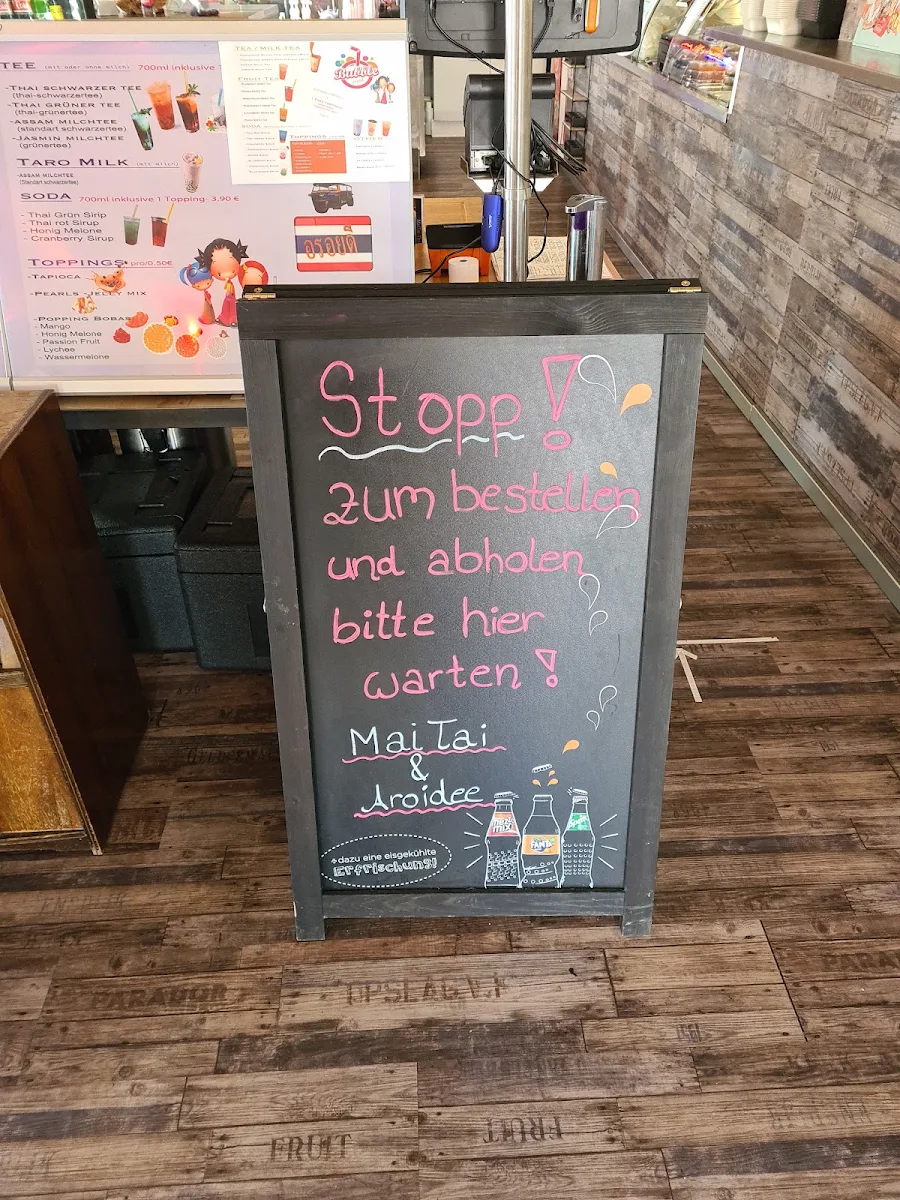 TEE (mit oder ohne Milch) 700ml inklusive
-Thai schwarzer tee
(thai-schwarzertee)
-Thai grüner tee
(thai-grünertee)
-Assam milchtee
(standart schwarzertee)
-Jasmin milchtee
(grünertee)
Taro Milk (mit Milch)
-Assam milchtee
(Standart schwarzertee)
SODA 700ml inklusive 1 Topping- 3.90 €
- Thai Grün Sirip
- Thai rot Sirup
- Honig Melone
- Cranberry Sirup
Toppings pro/0.50€
-Tapioca
-Pearls -Jelly mix
-Popping Bobas
- Mango
- Honig Melone
- Passion Fruit
- Lychee
- Wassermelone
Tea / Milk Tea
Fruit Tea
Soda
Toppings
Bubble
อร่อยดี
Stopp!
zum bestellen
und abholen
bitte hier
warten!
Mai Tai
&
Aroidee
mezzo
mix
FANTA
Sprite
+dazu eine eisgekühlte
Erfrischung!
PARADOR
FRUIT
FRUIT